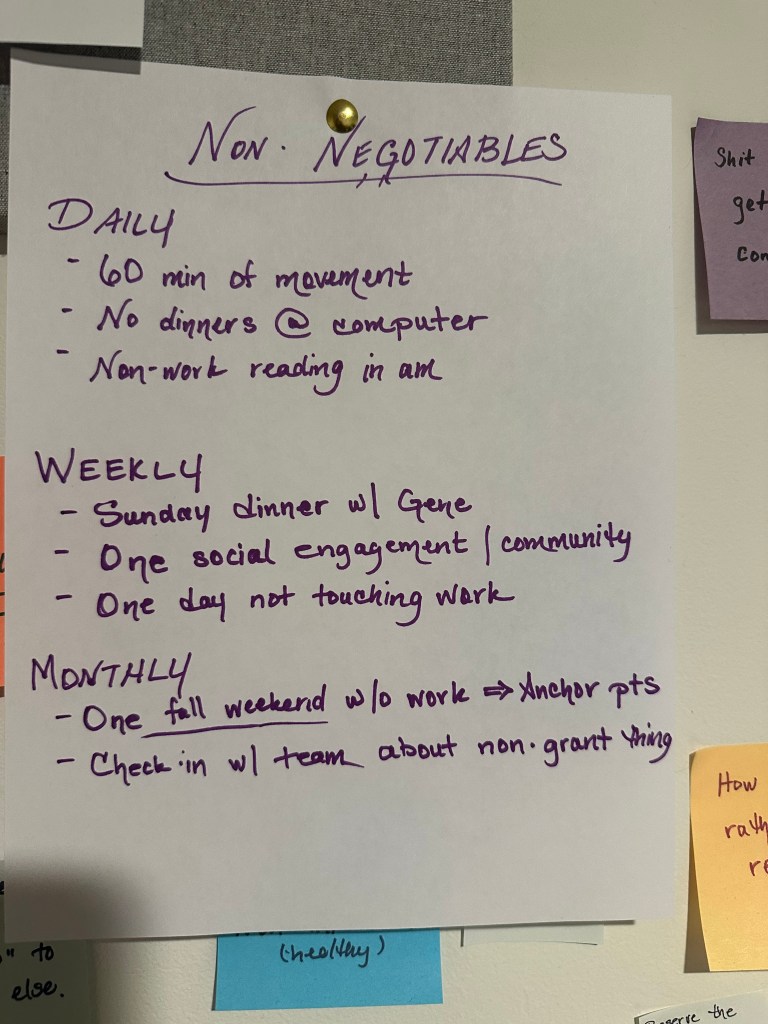 Non. Negotiables
Daily
- 60 min of movement
- No dinners @ computer
- Non-work reading in am
Weekly
- Sunday dinner w/ Gene
- One social engagement / community
- One day not touching work
Monthly
- One fall weekend w/o work ⇒ Anchor pts
- Check-in w/ team about non-grant thing
Shit
get
How
(healthy)
" to
else.
the